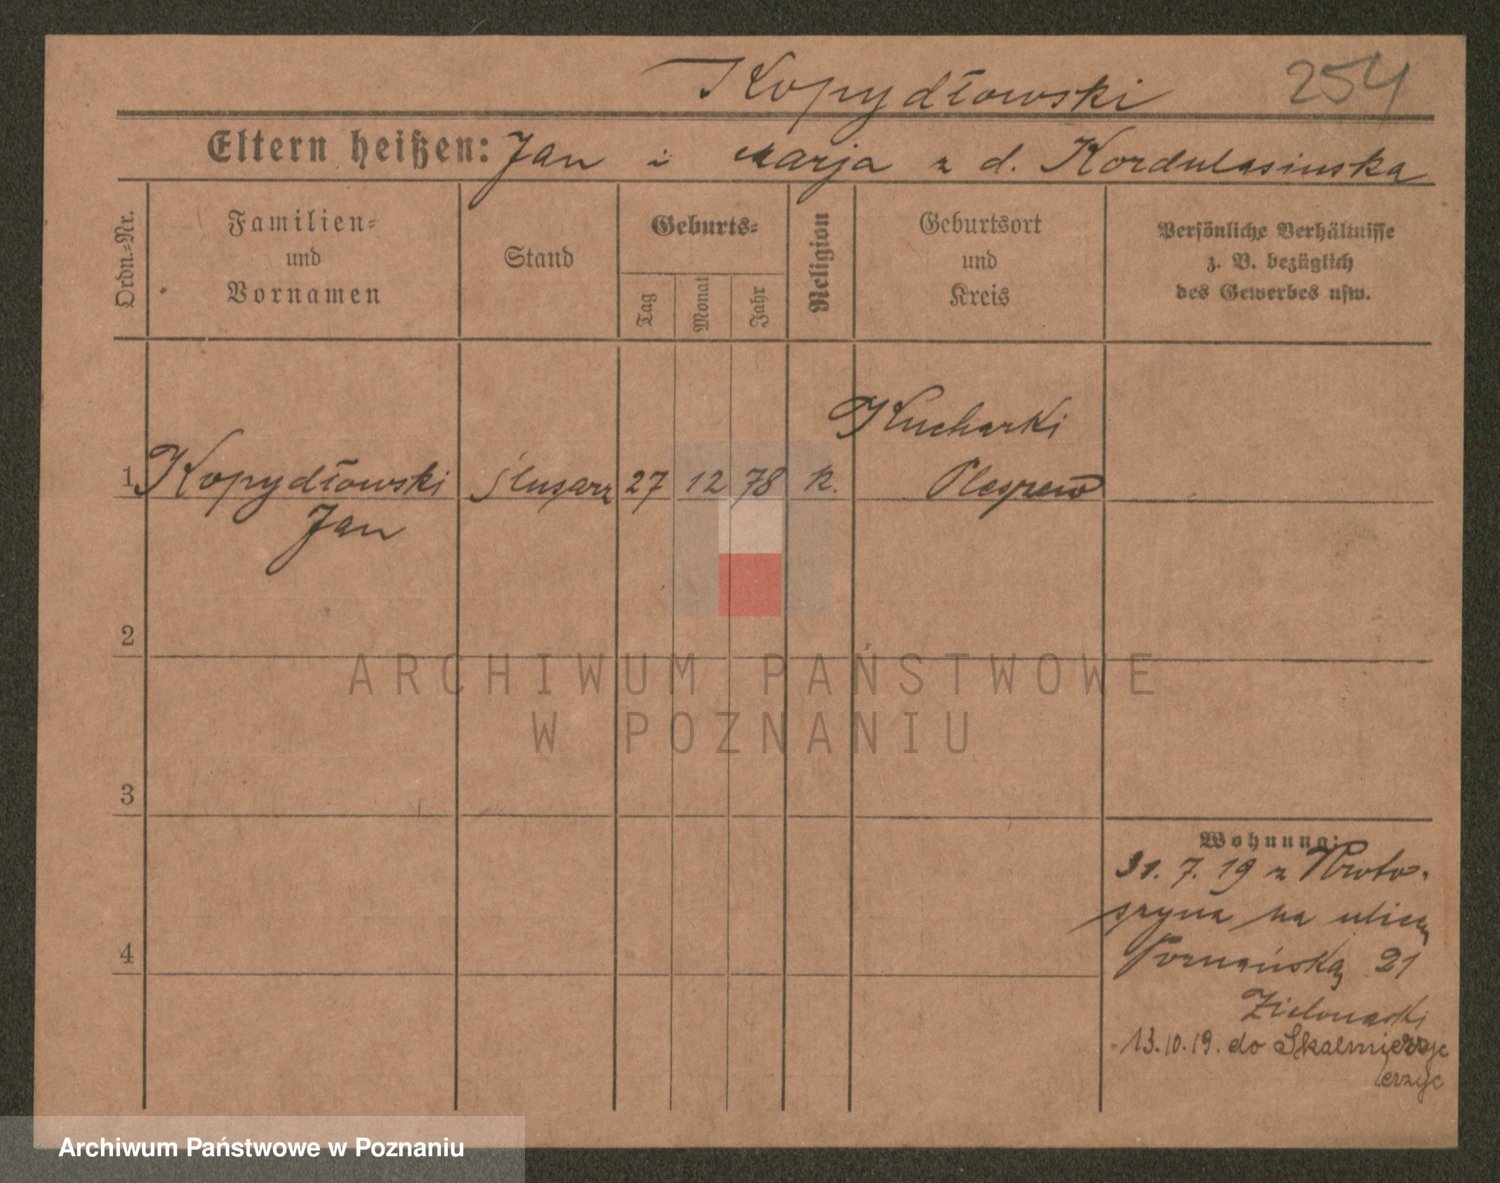 Kopydłowski 254
Eltern heißen: Jan i Marja z d. Kordulasinska
Ordn.-Nr.
Familien-
und
Vornamen
Stand
Geburts-
Tag
Monat
Jahr
Religion
Geburtsort
und
Kreis
Persönliche Verhältnisse
z. B. bezüglich
des Gewerbes usw.
Kucharki
1 Kopydłowski ślusarz 27 12 78 k. Pleszew
Jan
2
3
4
Wohnung:
31. 7. 19 z Kroto-
szyna na ulicę
Poznańską 21
13.10.19. do
ARCHIWUM PAŃSTWOWE
W POZNANIU
Archiwum Państwowe w Poznaniu